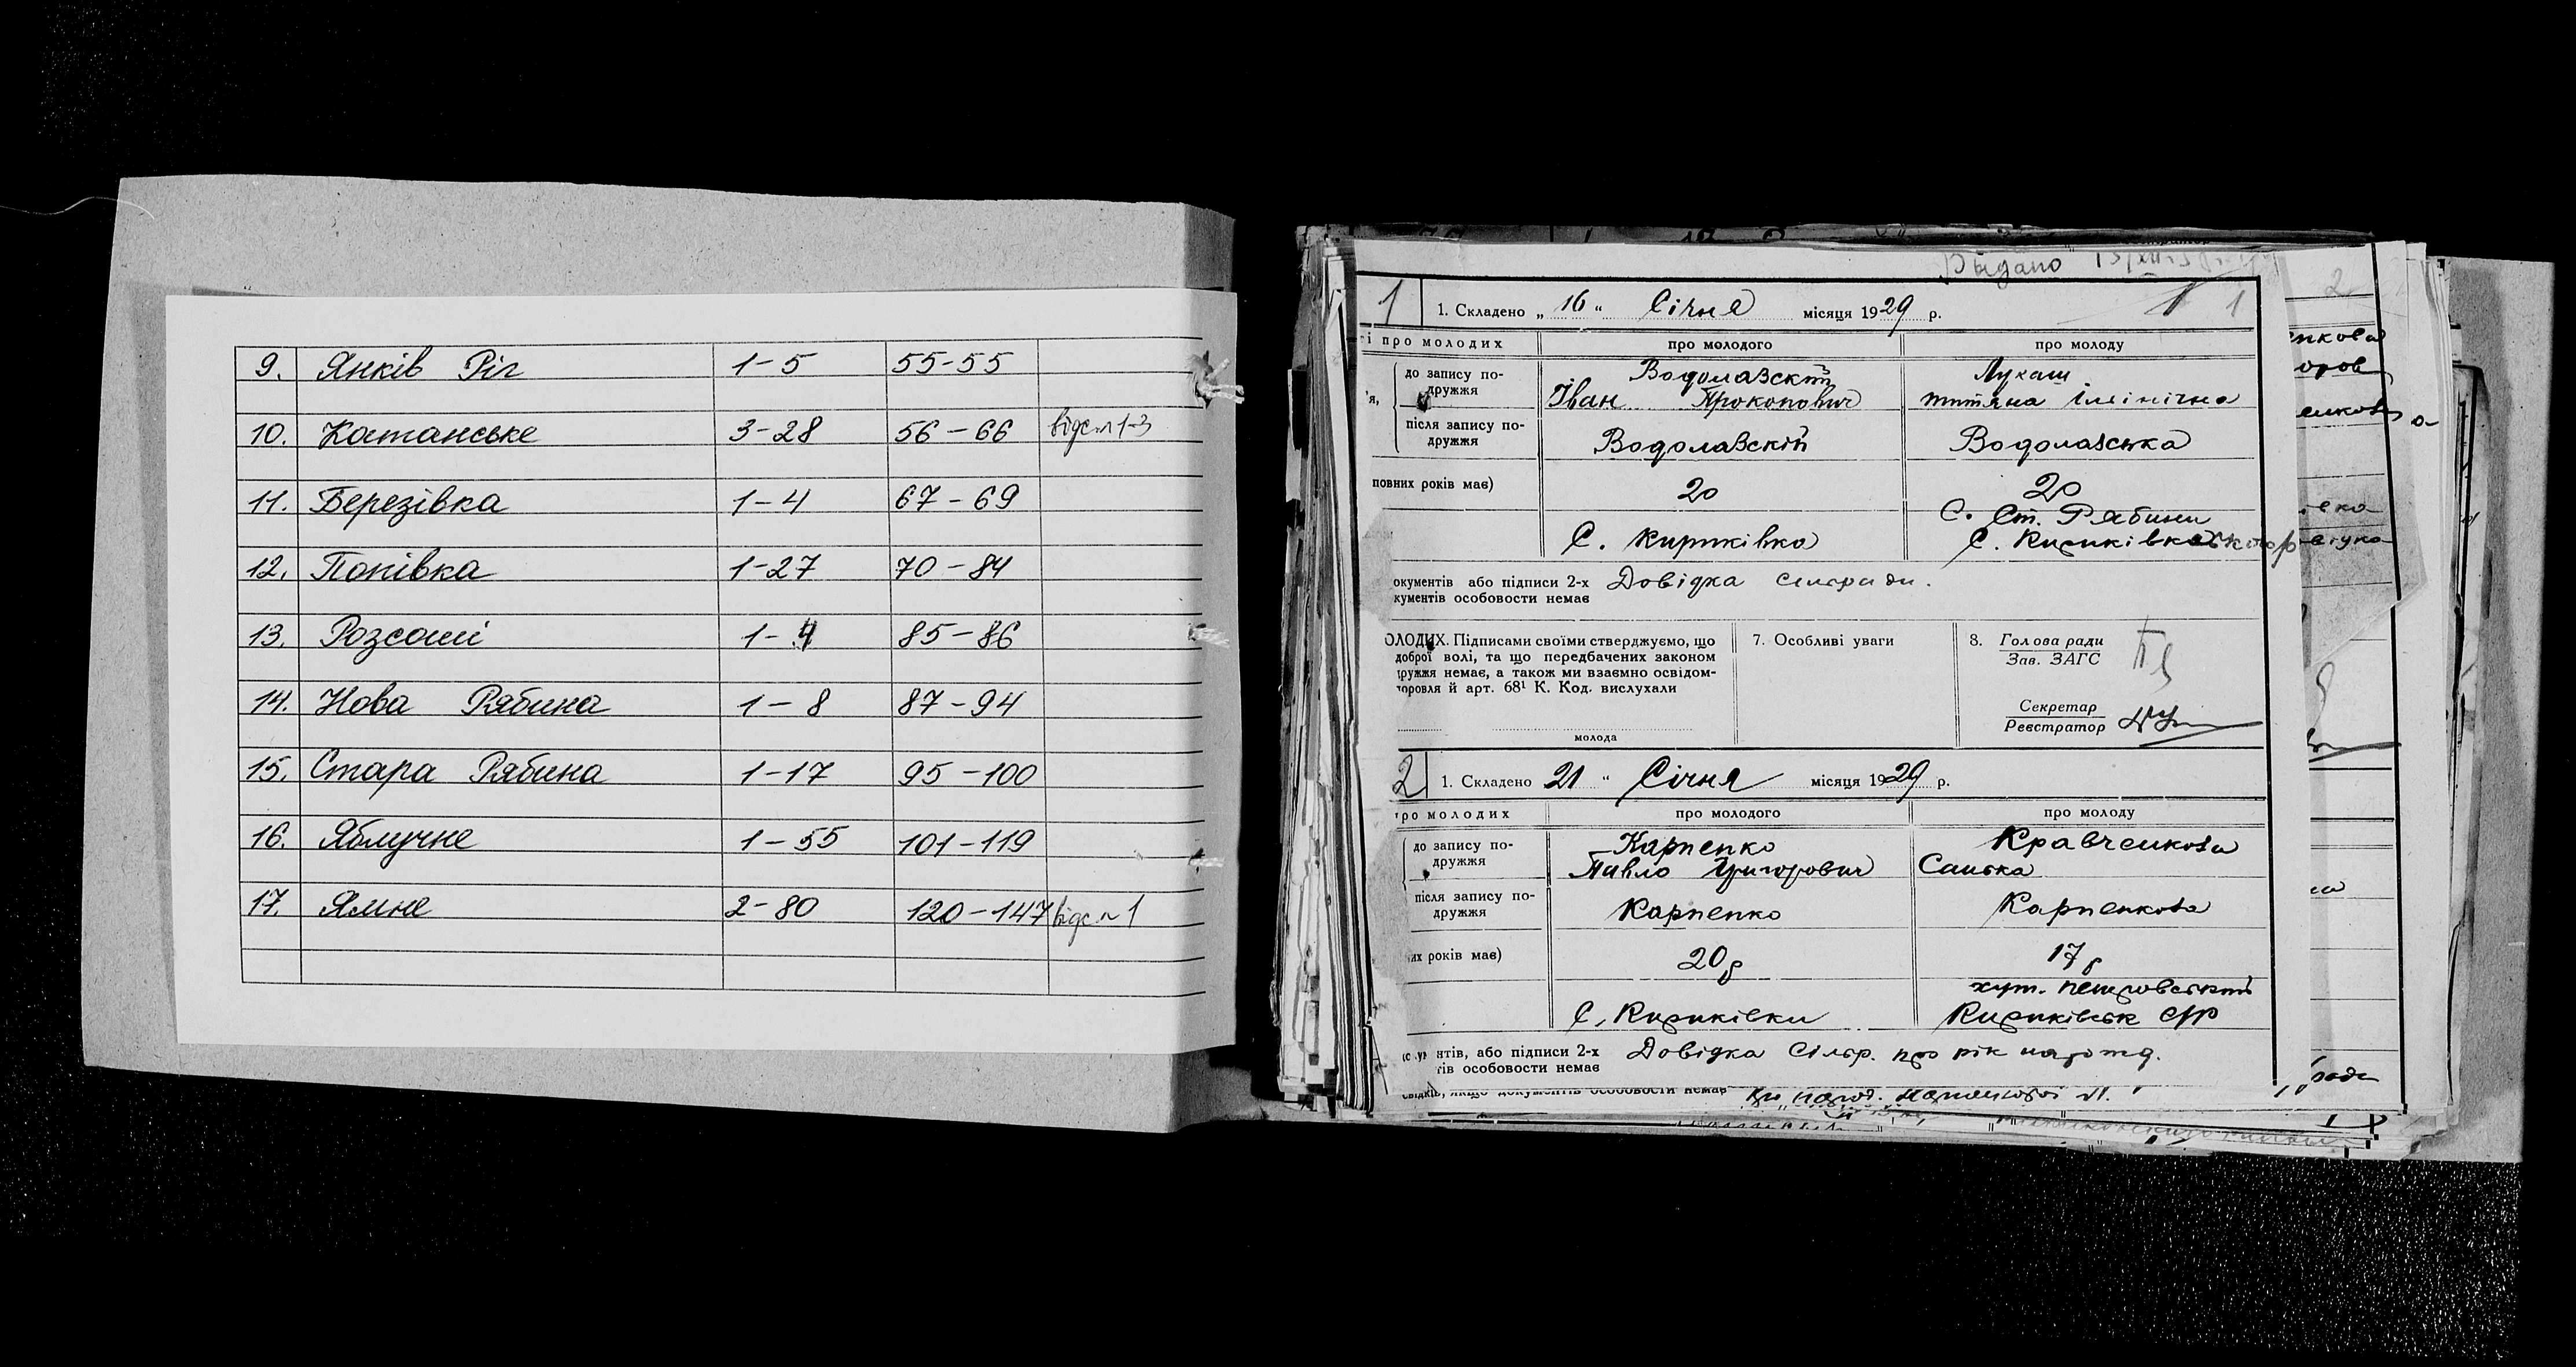 9. Янків Ріг 1-5 55-55
10. Катанське 3-28 56-66 відс. л 1-3
11. Березівка 1-4 67-69
12. Попівка 1-27 70-84
13. Розсоші 1-4 85-86
14. Нова Рябина 1-8 87-94
15. Стара Рябина 1-17 95-100
16. Яблучне 1-55 101-119
17. Ямне 2-80 120-147 відс. л 1
Видано
1 1. Складено „16“ Січня місяця 1929 р. 1
і про молодих про молодого про молоду
до запису по-
дружжя
Водолазскій Лукаш
я, Іван Прокопович
після запису по-
дружжя
Водолазскій Водолазська
повних років має) 20 20
С. Ст. Рябини
С. Кириківка С. Кириківка
окументів або підписи 2-х Довідка сільради.
кументів особовости немає
ОЛОДИХ. Підписами своїми стверджуємо, що
доброї волі, та що передбачених законом
дружжя немає, а також ми взаємно освідом-
доровля й арт. 68¹ К. Код. вислухали
молода
7. Особливі уваги
8. Голова ради
Зав. ЗАГС
Секретар
Реєстратор
2 1. Складено 21 “ Січня місяця 1929 р.
про молодих про молодого про молоду
до запису по-
дружжя
Карпенко Кравченкова
Павло Григорович Санька
після запису по-
дружжя
Карпенко Карпенкова
их років має) 20 р 17 р
хут. Петровський
С. Кириківки Кириківськ с/р
нтів, або підписи 2-х Довідка Сільр. про рік народ.
тів особовости немає
свідків, якщо документів особовости немає
2